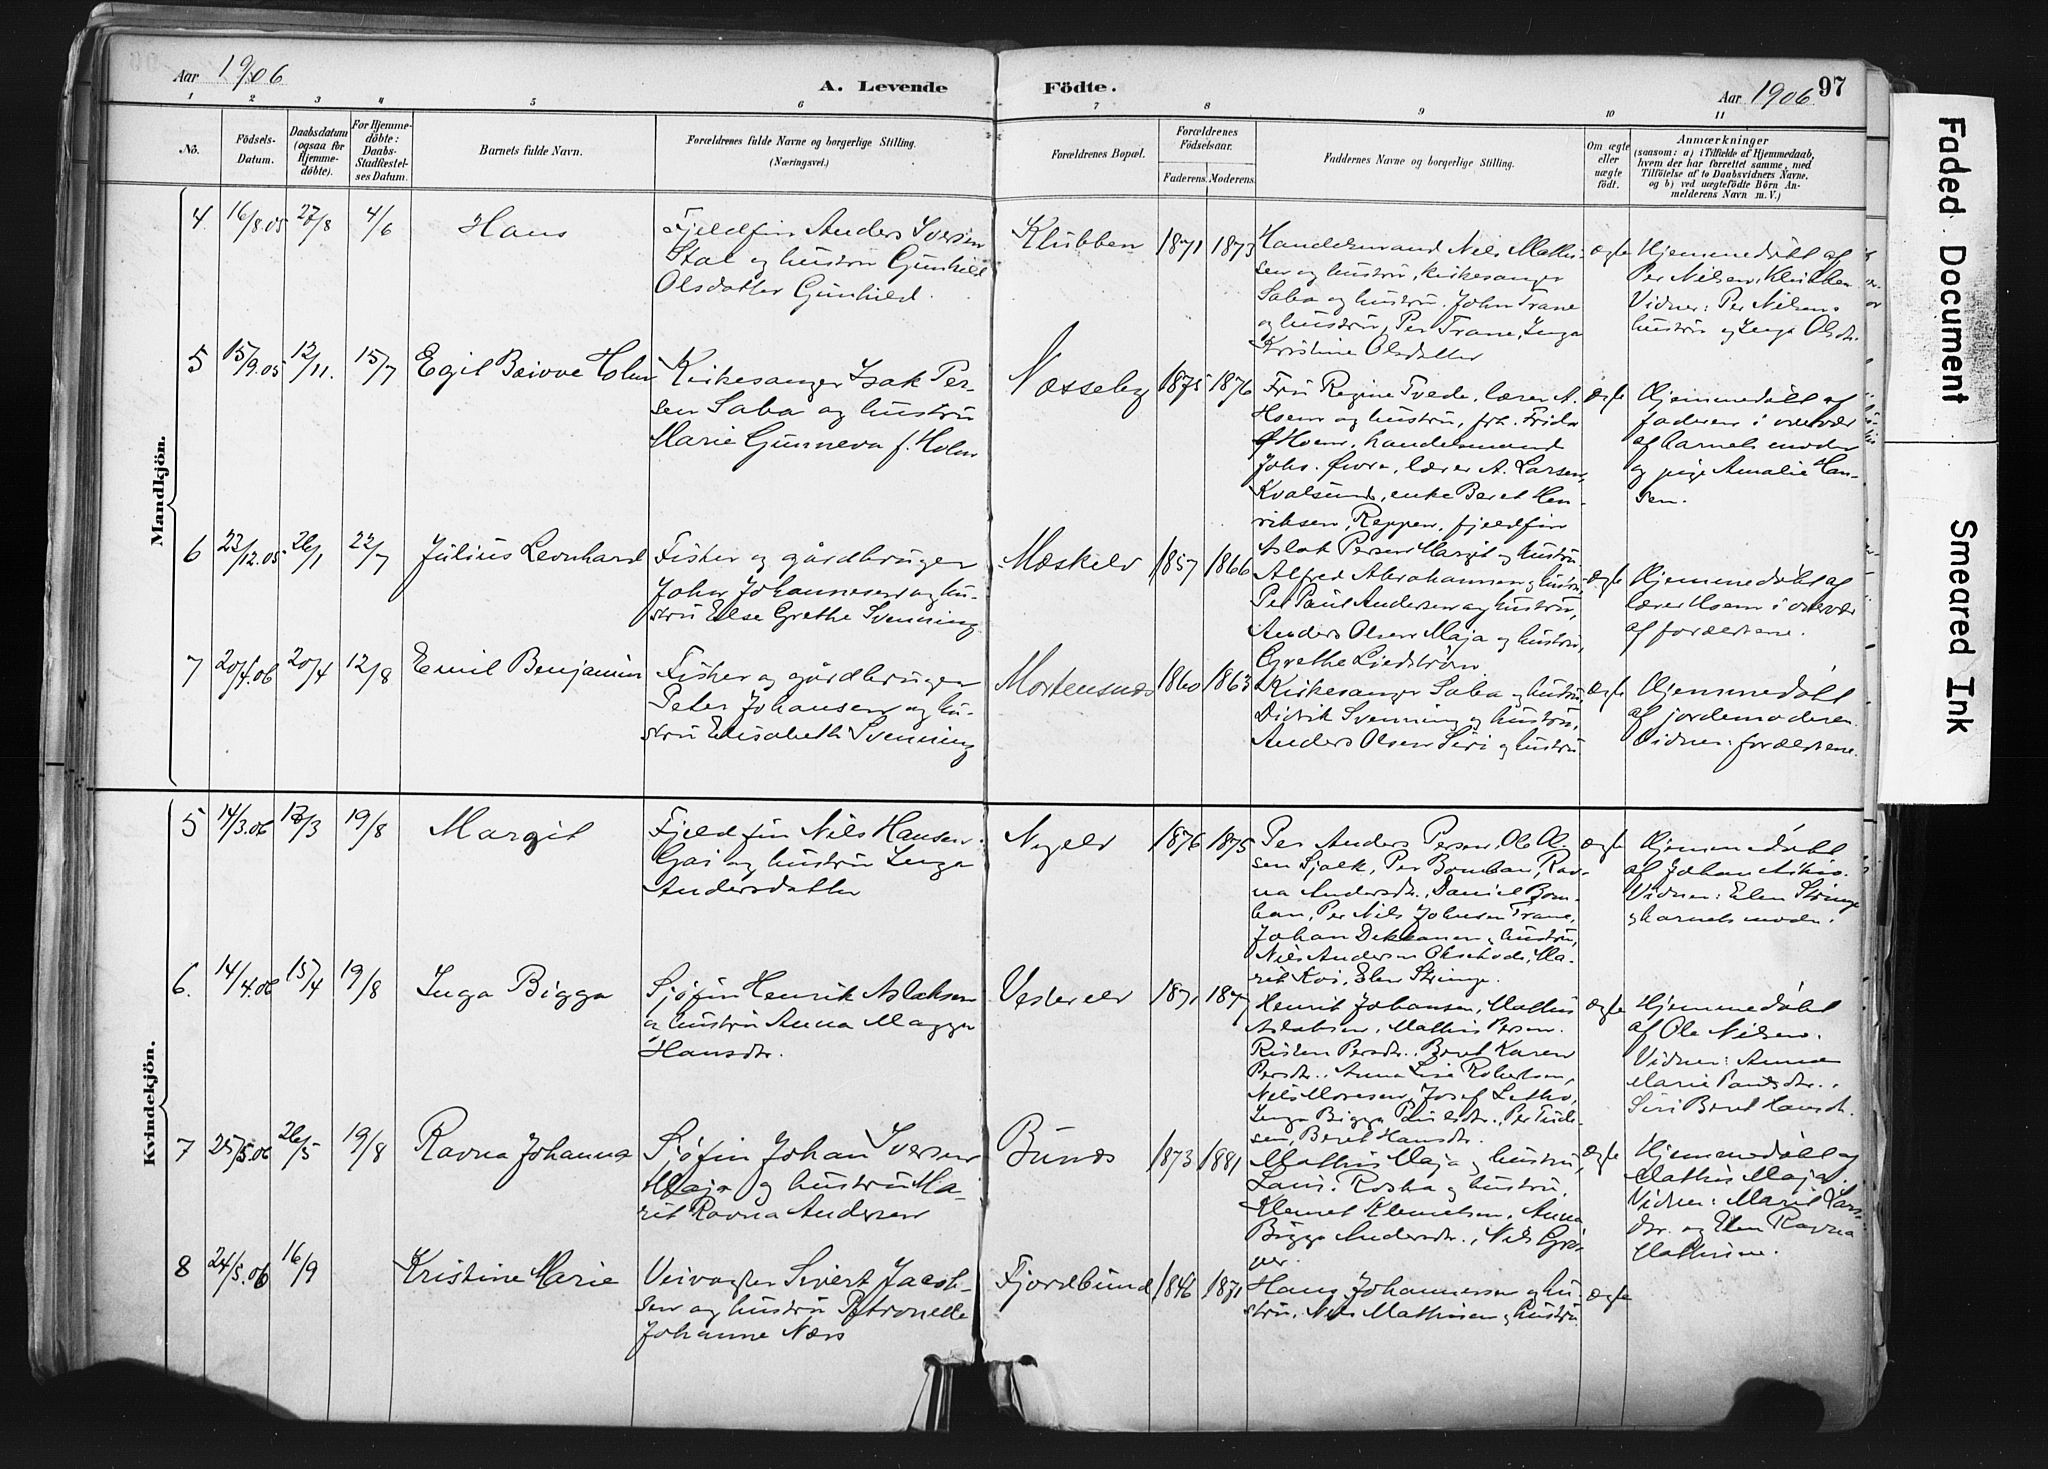 Aar 1906
A. Levende
Födte.
Aar 1906
97
1 2 3 4 5 6 7 8 9 10 11
Nö.
Födsels-
Datum.
Daabsdatum
(ogsaa for
Hjemme-
döbte).
For Hjemme-
döbte:
Daabs-
Stadfæstel-
ses Datum.
Barnets fulde Navn.
Forældrenes fulde Navne og borgerlige Stilling.
(Næringsvei.)
Forældrenes Bopæl.
Forældrenes
Födselsaar.
Faderens. Moderens.
Faddernes Navne og borgerlige Stilling.
Om ægte
eller
uægte
födt.
Anmærkninger
(saasom: a) i Tilfælde af Hjemmedaab,
hvem der har forrettet samme, med
Tilföielse af to Daabsvidners Navne.
og b) ved uægtefödte Börn An-
melderens Navn m. V.)
Mandkjön.
4. 16/8.05 27/8 4/6 Hans
Fjeldfin Anders Iversen
Stal og hustru Gunhild
Olsdatter Gunhild.
Klubben 1871 1873
Handelsmand Nils Mathi-
sen og hustru, kirkesanger
Saba og hustru. John Trane
og hustru, Per Trane, Inga
Kristine Olsdatter
ægte
Hjemmedöbt af
Per Nilsen, Klubben
Vidner: Per Nilsens
hustru og Inga Olsdtr.
5 15/9.05 12/11. 15/7 Egil Beivve Holm
Kirkesanger Isak Per-
sen Saba og hustru
Marie Gunneva f. Holm
Næsseby 1875 1876
Fru Regine Tvede, lærer A.
Hoem og hustru, frk. Frida
Hoem, handelsmand
Johs. Øvre, lærer A. Larsen,
Kvalsund, enke Beret Hen-
riksen, Reppen, fjeldfin
Aslak Persen Margit og hustru
ægte
Hjemmedöbt af
faderen i overvær
af barnets moder
og pige Amalie Han-
sen.
6 22/12.05 26/1 22/7 Julius Leonhard
Fisker og gårdbruger
John Johannesen og hu-
stru Else Grethe Svenning
Mæskelv 1857 1866
Alfred Abrahamsen og hustru,
Per Paul Andersen og hustru,
Anders Olsen Maja og hustru,
Grethe Liedström
ægte
Hjemmedöbt af
lærer Hoem i overvær
af forældrene.
7 20/4.06 20/4 12/8 Emil Benjamin
Fisker og gårdbruger
Peter Johansen og hu-
stru Elisabeth Svenning
Mortensnæs 1860 1863
Kirkesanger Saba og hustru
Didrik Svenning og hustru,
Anders Olsen Siri og hustru
ægte
Hjemmedöbt
af jordemoderen.
Vidner: forældrene.
Kvindekjön.
5 14/3.06 18/3 19/8 Margit
Fjeldfin Nils Hansen
Gai og hustru Inga
Andersdatter
Nyelv 1876 1875
Per Anders Persen, Ole Ol-
sen Sjalk, Per Bomban, Rav-
na Andersdtr., Daniel Bom-
ban, Per Nils Johnsen Trane,
Johan Dikkanen og hustru,
Nils Andersen, Ma-
rit Koi, Elen Stringe.
ægte
Hjemmedöbt
af Johan Aikio.
Vidner: Elen Stringe
og barnets moder.
6. 14/4.06 15/4 19/8 Inga Bigga
Sjöfin Henrik Aslaksen
og hustru Anna Magga
Hansdtr.
Vesterelv 1871 1877
Henrik Johansen, Mathis
Aslaksen, Mathis Persen.
Risten Persdtr., Beret Karen
Persdtr., Anna Lise Robertsen,
Nils Noresen, Josef Letho,
Inga Bigga Paulsdtr., Per Tudi-
sen, Beret Hansdtr.
ægte
Hjemmedöbt
af Ole Nilsen.
Vidner: Anna
Marie Paulsdtr.,
Siri Beret Hansdtr.
7 25/5.06 26/5 19/8 Ravna Johanna
Sjöfin Johan Iversen
Maja og hustru Ma-
rit Ravna Andersen
Bunæs 1873 1881
Mathis Maja og hustru,
Lars. Roska og hustru,
Klemet Klemetsen, Anna
Bigga Andersdtr., Nils Grö-
ver.
ægte
Hjemmedöbt af
Mathis Maja.
Vidner: Marit Lars-
dtr. og Elen Ravna
Mathisen.
8 24/5.06 16/9 Kristine Marie
Veivogter Sivert Jacob-
sen og hustru Petronelle
Johanne Næss
Fjordbund 1846 1871
Hans Johannesen og hu-
stru, Nils Mathisen og hustru
ægte
Faded Document
Smeared Ink